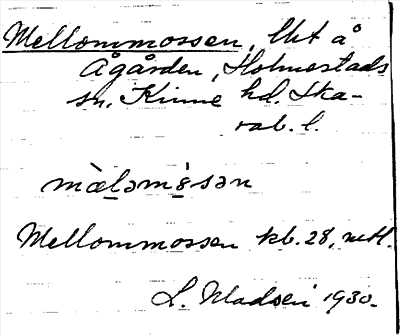 Mellommossen, lht å
Ågården, Holmestads
sn. Kinne hd. Ska-
rab. l.
mæ̀ləmɵ́sən
Mellommossen kb. 28,
L. Madsen 1930.